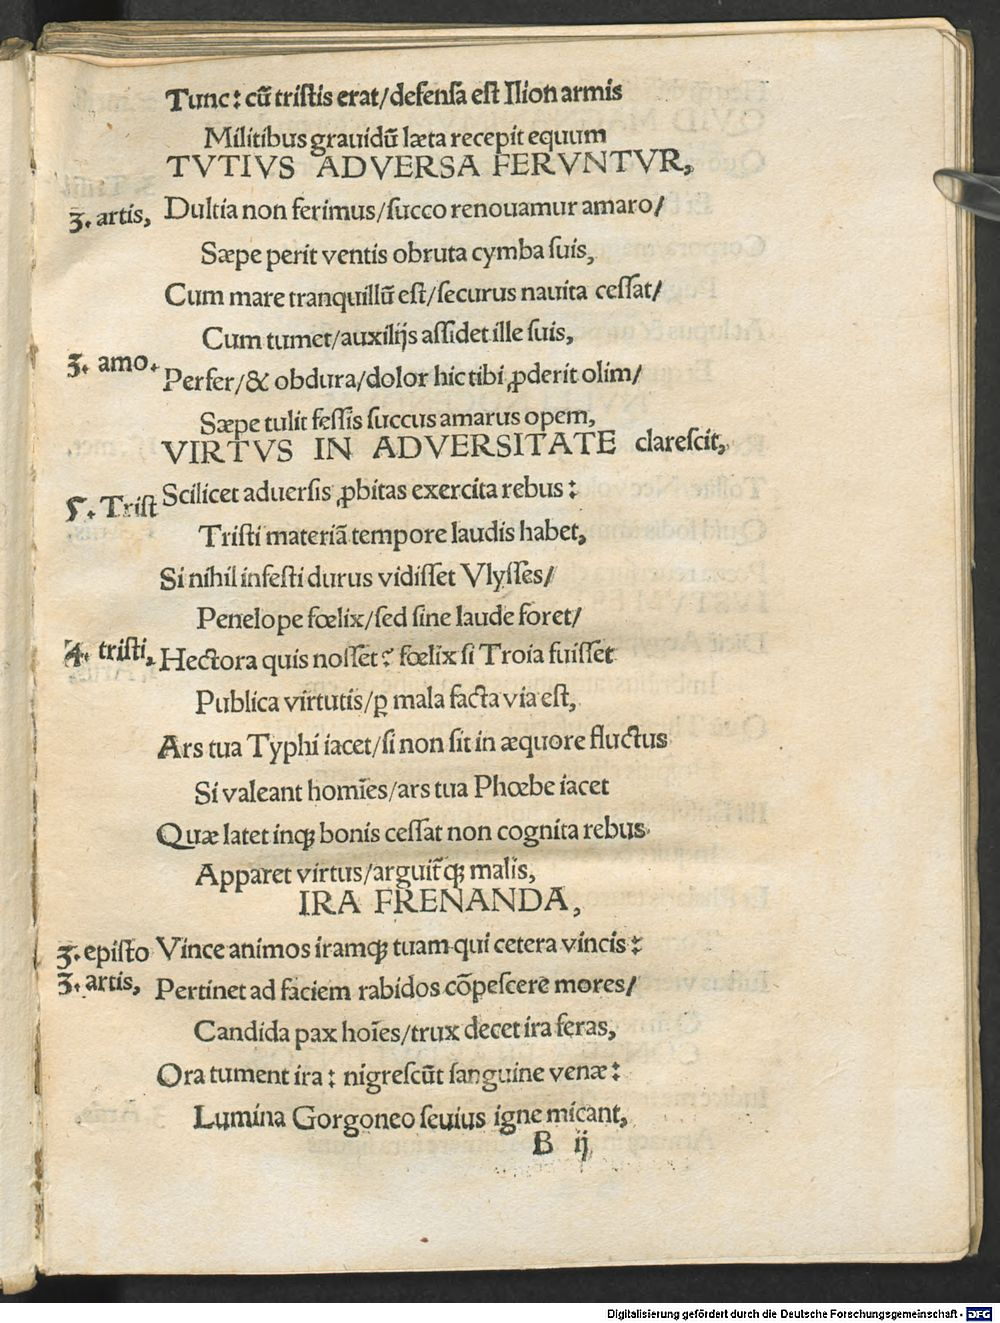 Tunc: cũ tristis erat/defensa est Ilion armis
Militibus grauidũ læta recepit equum
TVTIVS ADVERSA FERVNTVR,
3. artis, Dultia non ferimus/succo renouamur amaro/
Sæpe perit ventis obruta cymba suis,
Cum mare tranquillũ est/securus nauita cessat/
Cum tumet/auxilijs assidet ille suis,
3. amo. Perfer/& obdura/dolor hic tibi ꝓderit olim/
Sæpe tulit fessis succus amarus opem,
VIRTVS IN ADVERSITATE clarescit,
5. Trist Scilicet aduersis ꝓbitas exercita rebus:
Tristi materiã tempore laudis habet,
Si nihil infesti durus vidisset Vlysses/
Penelope fœlix/sed sine laude foret/
4. tristi, Hectora quis nosset? fœlix si Troia fuisset
Publica virtutis/ꝑ mala facta via est,
Ars tua Typhi iacet/si non sit in æquore fluctus
Si valeant homĩes/ars tua Phœbe iacet
Quæ latet inqꝫ bonis cessat non cognita rebus
Apparet virtus/arguit᷑qꝫ malis,
IRA FRENANDA,
3. episto Vince animos iramqꝫ tuam qui cetera vincis:
3. artis, Pertinet ad faciem rabidos cõpescere mores/
Candida pax hoĩes/trux decet ira feras,
Ora tument ira: nigrescũt sanguine venæ:
Lumina Gorgoneo seuius igne micant,
B ij
Digitalisierung gefördert durch die Deutsche Forschungsgemeinschaft - DFG